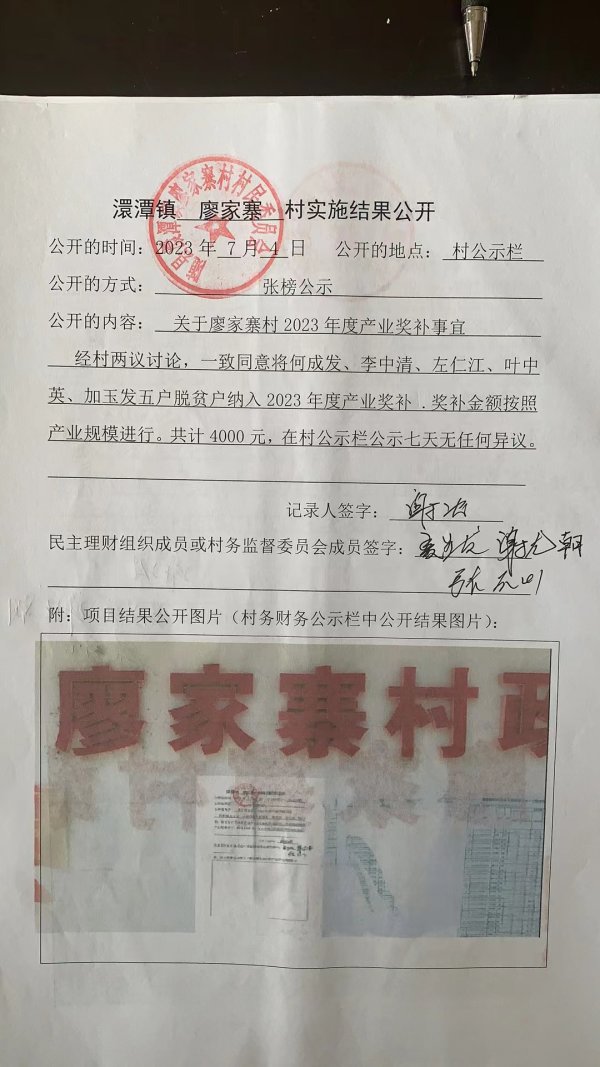 澴潭镇 廖家寨 村实施结果公开
公开的时间：2023 年 7 月 4 日 公开的地点： 村公示栏
公开的方式： 张榜公示
公开的内容： 关于廖家寨村 2023 年度产业奖补事宜
经村两议讨论，一致同意将何成发、李中清、左仁江、叶中
英、加玉发五户脱贫户纳入 2023 年度产业奖补 .奖补金额按照
产业规模进行。共计 4000 元，在村公示栏公示七天无任何异议。
记录人签字：
民主理财组织成员或村务监督委员会成员签字：
附：项目结果公开图片（村务财务公示栏中公开结果图片）：
廖家寨村政